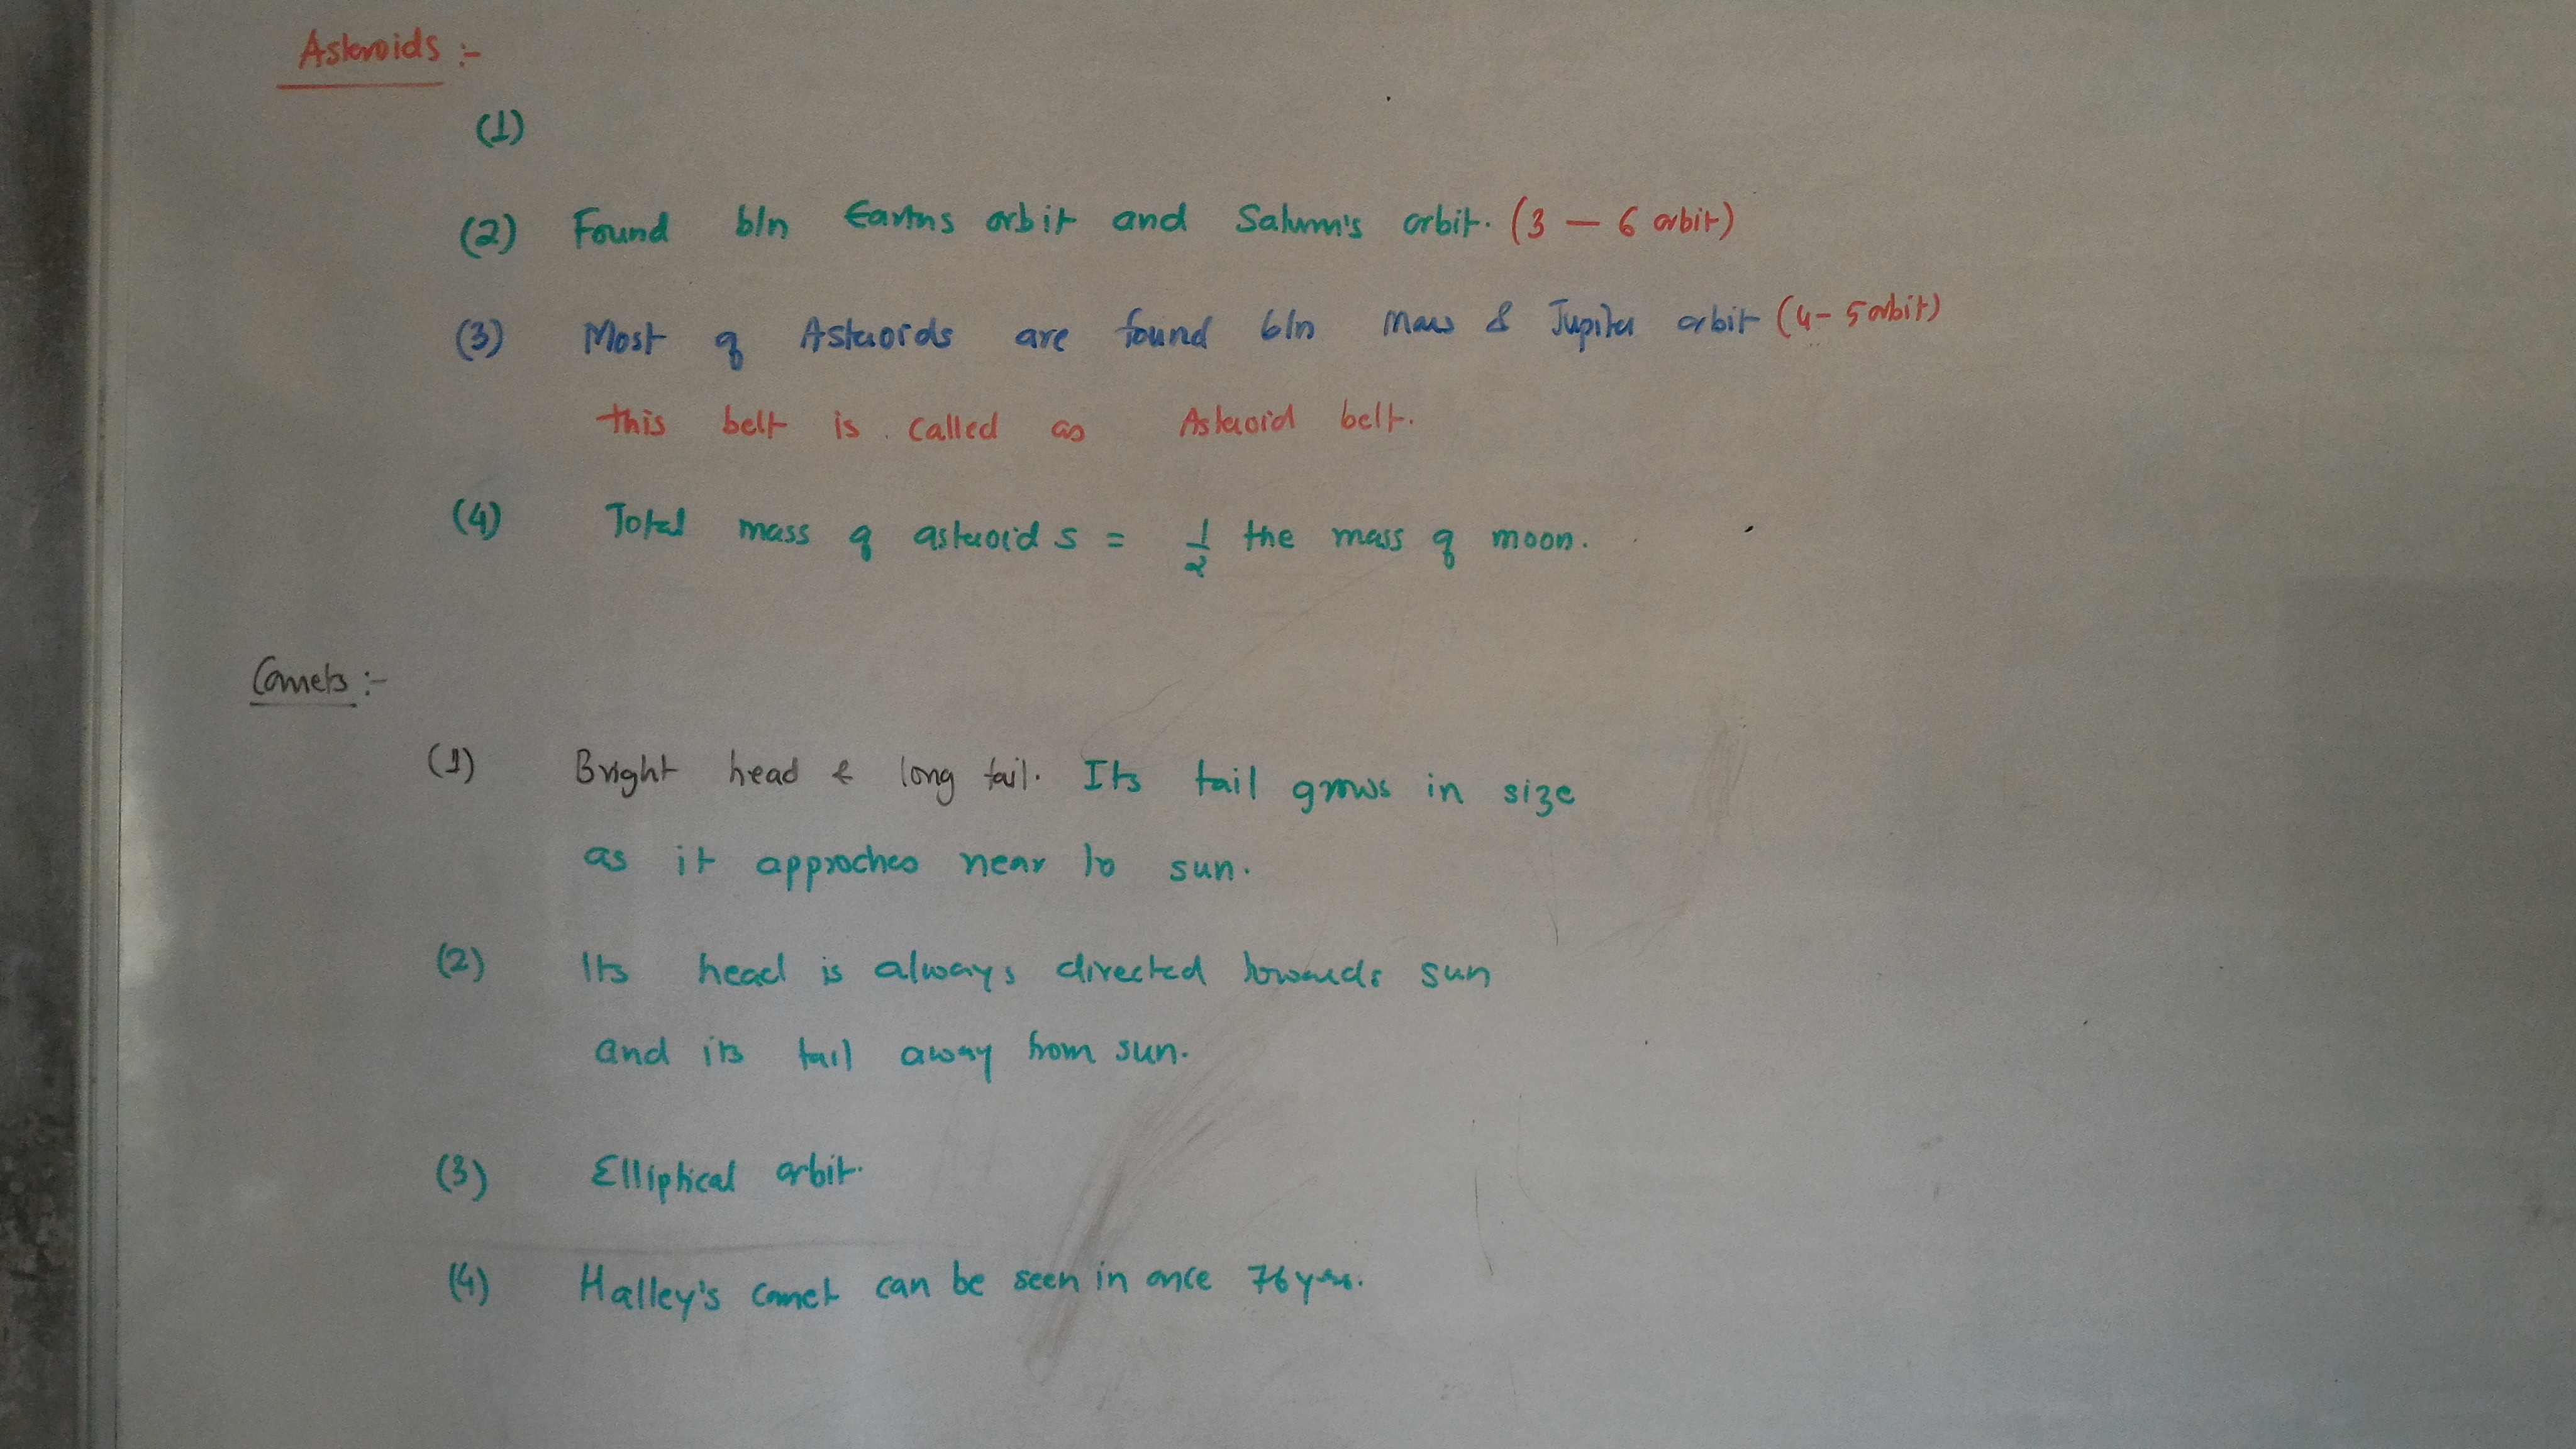 Asteroids :-
(1)
(2) Found b/n Earths orbit and Saturn's orbit. (3 — 6 orbit)
(3) Most of Asteroids are found b/n Mars & Jupiter orbit (4 - 5 orbit)
this belt is called as Asteroid belt.
(4) Total mass of asteroids = 1/2 the mass of moon.
Comets :-
(1) Bright head & long tail. Its tail grows in size
as it approches near to sun.
(2) Its head is always directed towards sun
and its tail away from sun.
(3) Elliptical orbit.
(4) Halley's comet can be seen in once 76 yrs.